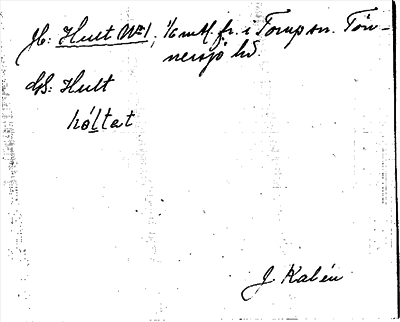 Jb: Hult Nº1, 1/6 mtl. fr. i Torup sn. Tön-
nersjö hd.
Uß: Hult
hóltat
J. Kalén